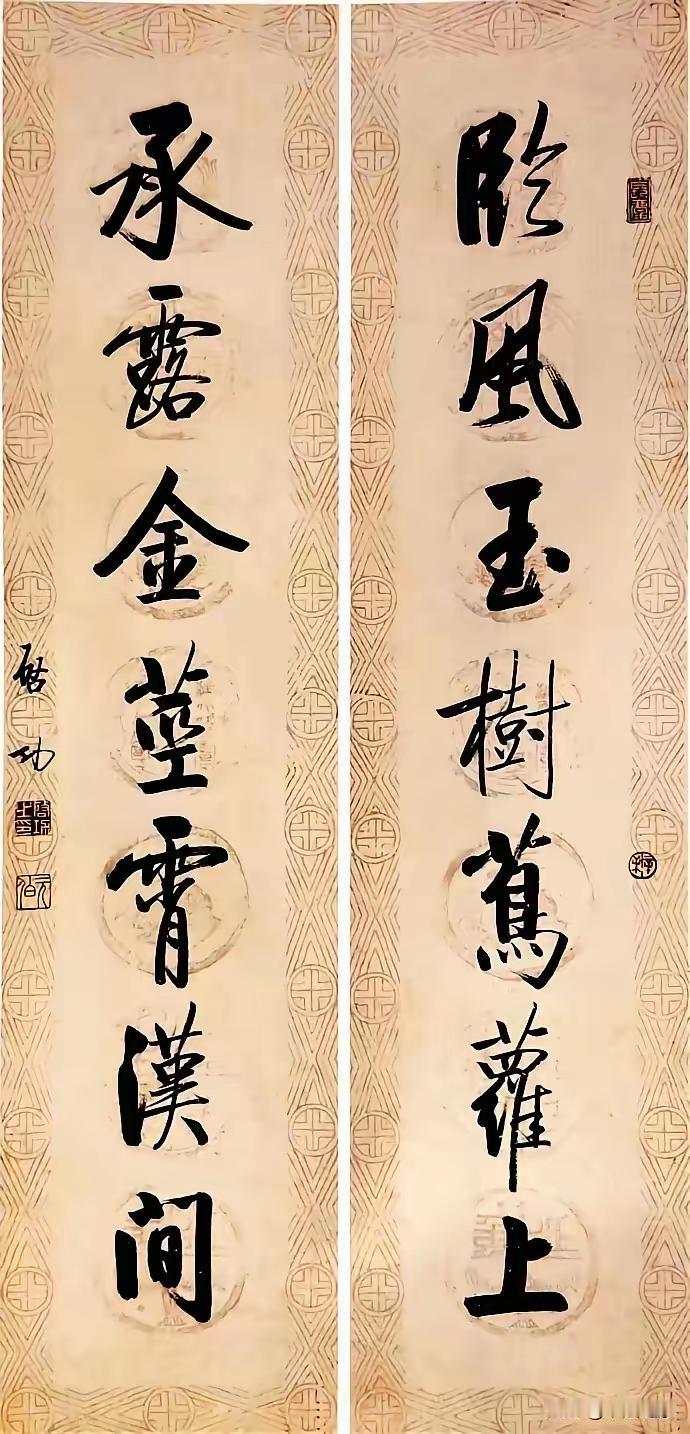 臨風玉樹蔦蘿上
承露金莖霄漢間
啓功
元白